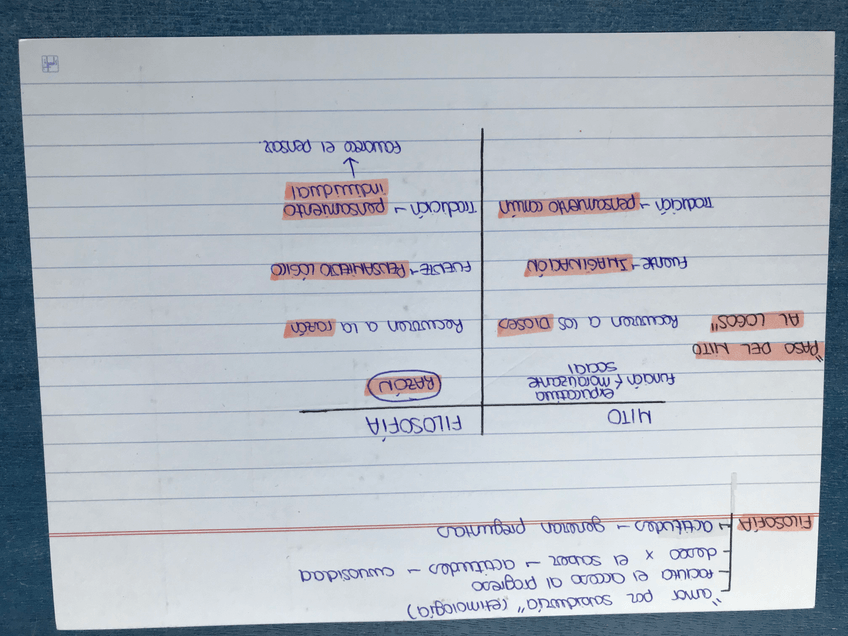 "amor por sabiduría" (etimología)
- facilita el acceso al progreso
- deseo x el saber → actitudes → curiosidad
FILOSOFÍA → actitudes → generan preguntas
MITO FILOSOFÍA
explicativa
función moralizante RAZÓN
social
"PASO DEL MITO
AL LOGOS" Recurren a los DIOSES Recurren a la razón
Fuente → IMAGINACIÓN FUENTE → PENSAMIENTO LÓGICO
Tradición → pensamiento común Tradición → pensamiento
individual
↓
Favorece el pensar.